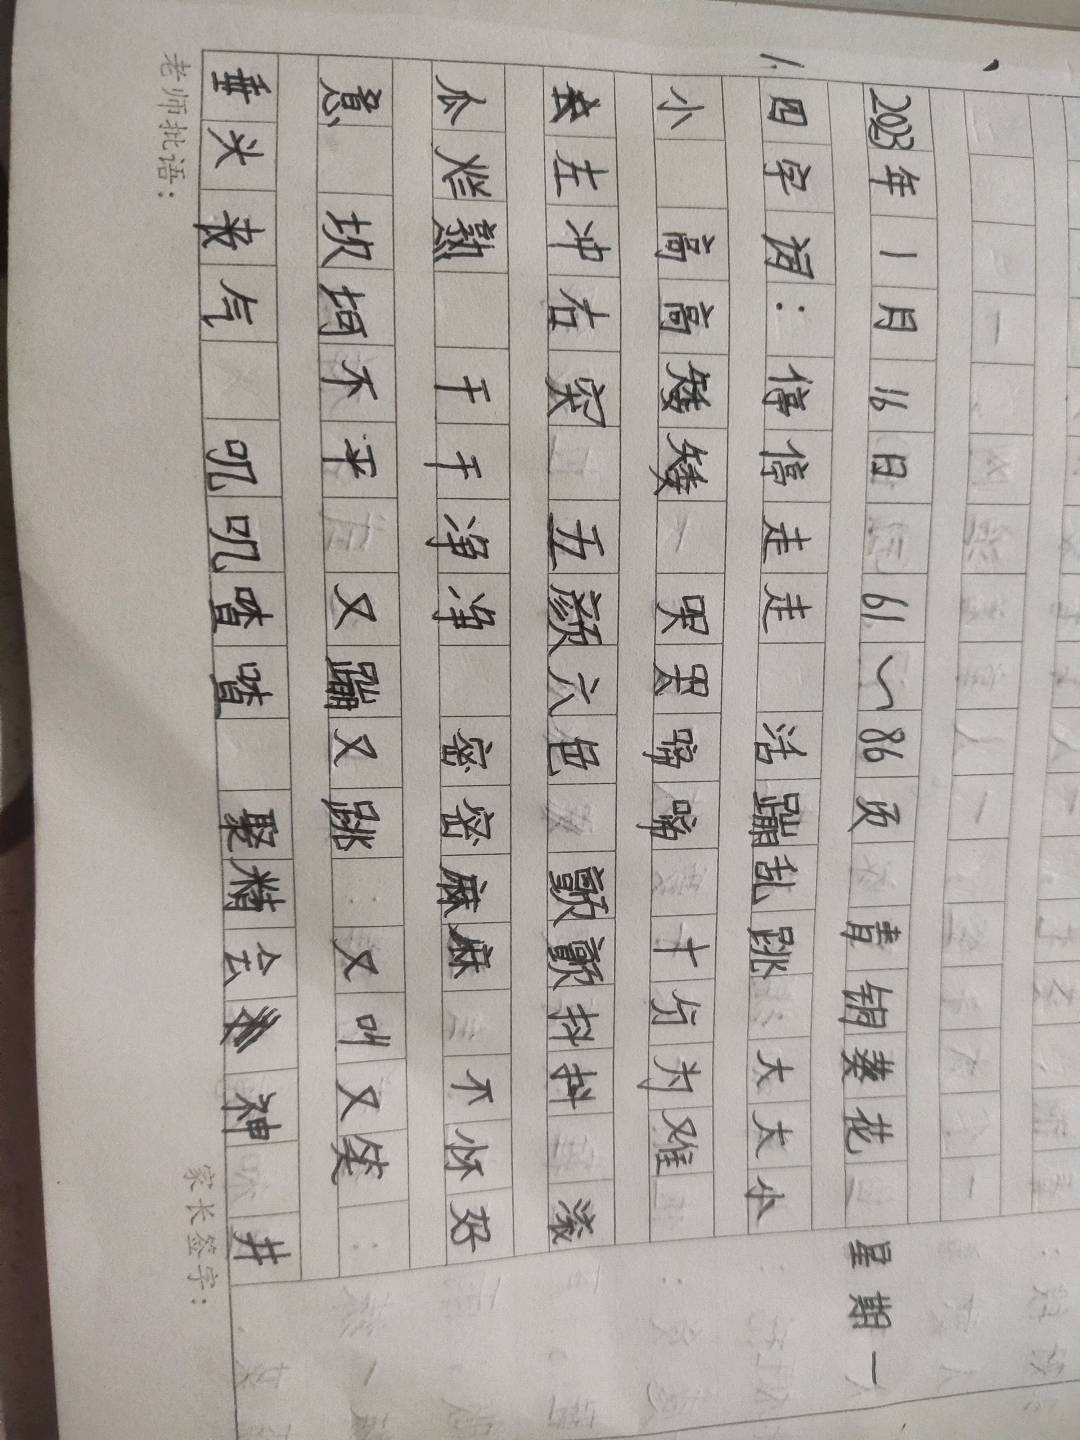 2023年1月16日 61~86页 青铜葵花 星期一
1.
四字词：停停走走 活蹦乱跳 大大小
小 高高矮矮 哭哭啼啼 十分为难
去左冲右突 五颜六色 颤颤抖抖 滚
瓜烂熟 干干净净 密密麻麻 不怀好
意 坎坷不平 又蹦又跳 又叫又笑
垂头丧气 叽叽喳喳 聚精会神 井
老师批语：
家长签字：